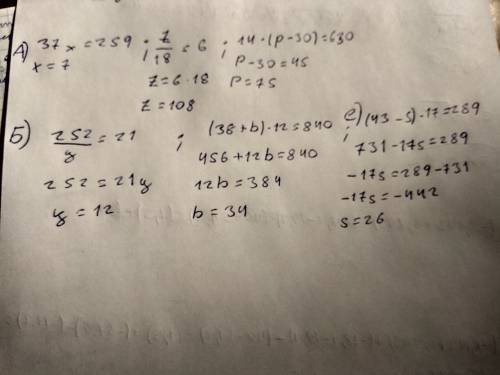 А) 37x = 259 ; z/18 = 6 ; 14 · (p - 30) = 630
x = 7 z = 6 · 18 p - 30 = 45
z = 108 p = 75
Б) 252/y = 21 ; (38 + b) · 12 = 840 ; е) (43 - s) · 17 = 289
252 = 21y 456 + 12b = 840 731 - 17s = 289
y = 12 12b = 384 -17s = 289 - 731
b = 34 -17s = -442
s = 26